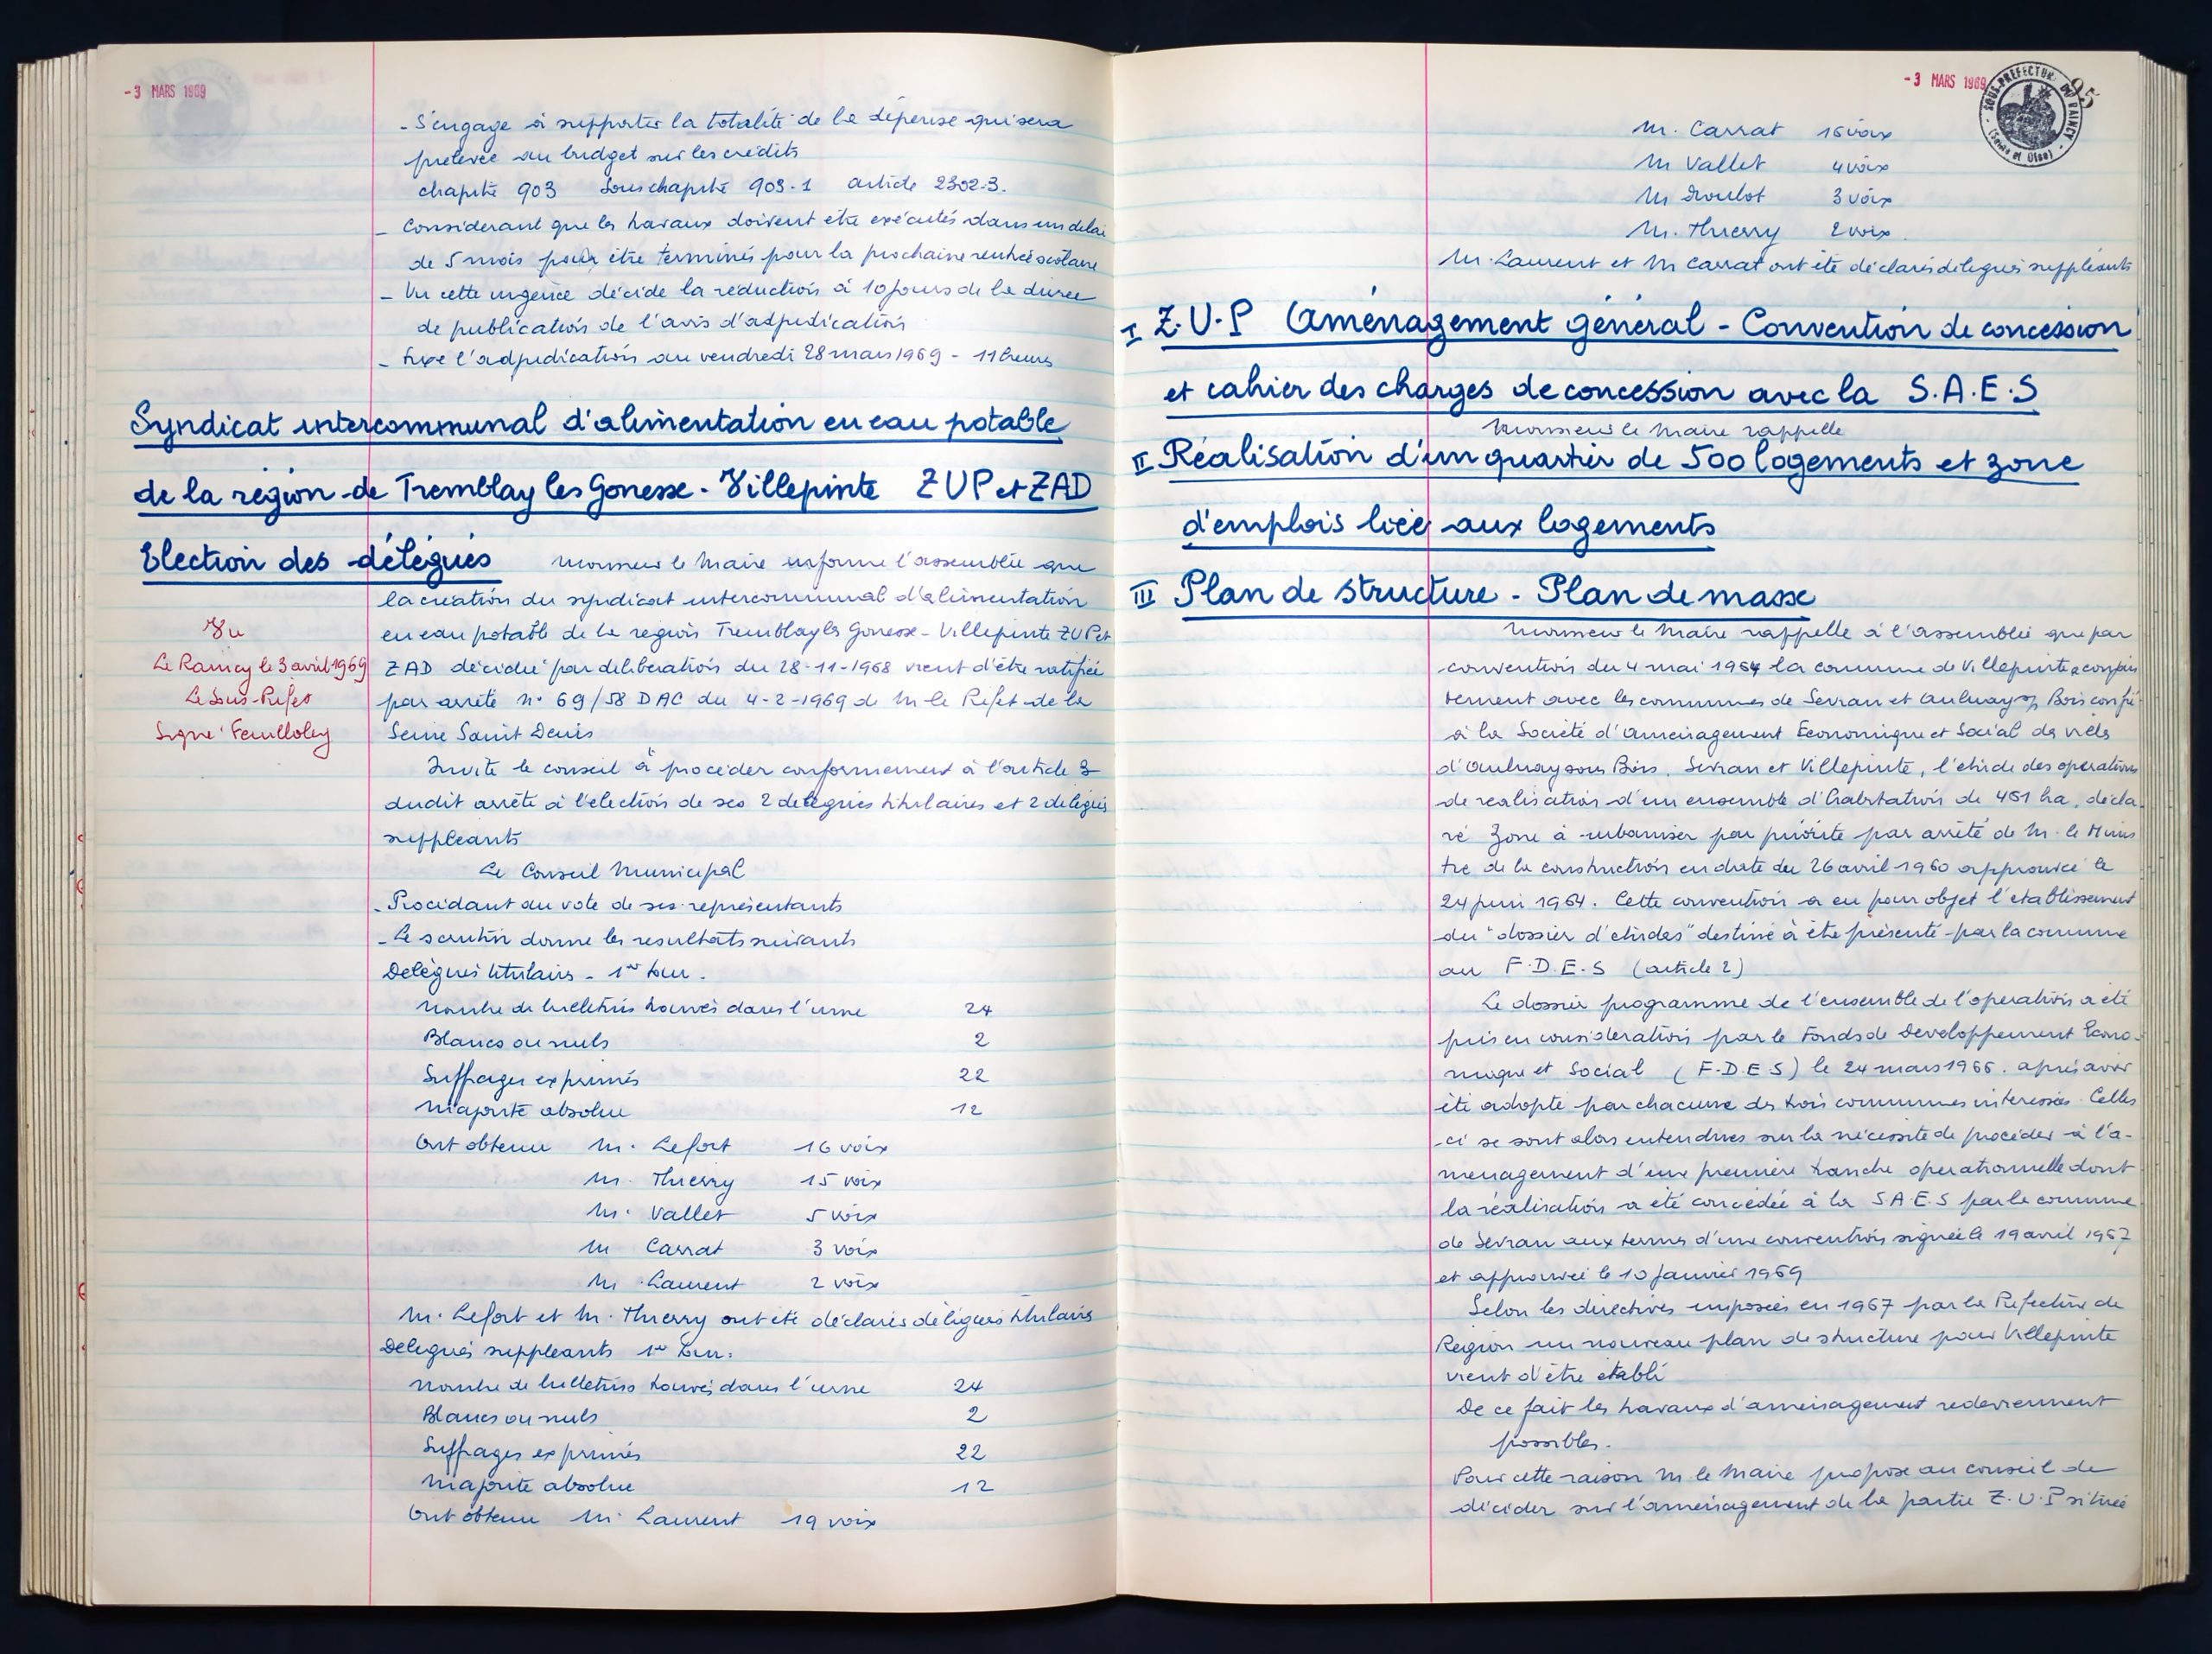 -3 MARS 1969
- S'engage à supporter la totalité de la dépense qui sera
prelevée au budget sur les crédits
chapitre 903 Sous chapitre 903-1 article 2302-3.
- Considerant que les travaux doivent être exécutés dans un delai
de 5 mois pour être terminés pour la prochaine rentrée scolaire
- Vu cette urgence décide la réduction à 10 jours de la durée
de publication de l'avis d'adjudication
- Fixe l'adjudication au vendredi 28 mars 1969 - 11 heures
Syndicat intercommunal d'alimentation en eau potable
de la région de Tremblay les Gonesse - Villepinte ZUP et ZAD
Election des délégués Monsieur le Maire informe l'assemblée que
la création du syndicat intercommunal d'alimentation
en eau potable de la région Tremblay les Gonesse - Villepinte ZUP et
ZAD décidée par deliberation du 28-11-1968 vient d'être ratifiée
par arrêté n° 69/58 DAC du 4-2-1969 de M. le Préfet de la
Seine Saint Denis
Vu
Le Raincy le 3 avril 1969
Le Sous-Préfet
Signé
Invite le conseil à procéder conformément à l'article 3
dudit arrêté à l'élection de ses 2 délégués titulaires et 2 délégués
suppléants
Le Conseil Municipal
- Procédant au vote de ses représentants
- Le scrutin donne les résultats suivants
Délégués titulaires - 1er tour.
Nombre de bulletins trouvés dans l'urne 24
Blancs ou nuls 2
Suffrages exprimés 22
Majorité absolue 12
Ont obtenu M. Lefort 16 voix
M. Thierry 15 voix
M. Vallet 5 voix
M Carrat 3 voix
M. Laurent 2 voix
M. Lefort et M. Thierry ont été déclarés délégués titulaires
Délégués suppléants 1er tour.
Nombre de bulletins trouvés dans l'urne 24
Blancs ou nuls 2
Suffrages exprimés 22
Majorité absolue 12
Ont obtenu M. Laurent 19 voix
-3 MARS 1969
SOUS-PREFECTURE DU RAINCY
(Seine et Oise)
95
M. Carrat 16 voix
M Vallet 4 voix
M Droulot 3 voix
M. Thierry 2 voix.
M. Laurent et M Carrat ont été déclarés délégués suppléants
I Z.U.P Aménagement général - Convention de concession
et cahier des charges de concession avec la S.A.E.S
Monsieur le Maire rappelle
II Réalisation d'un quartier de 500 logements et zone
d'emplois liée aux logements
III Plan de structure - Plan de masse
Monsieur le Maire rappelle à l'assemblée que par
convention du 4 mai 1964 la commune de Villepinte a conjoin
tement avec les communes de Sevran et Aulnay s/ Bois confié
à la Société d'Aménagement Economique et Social des villes
d'Aulnay sous Bois, Sevran et Villepinte, l'étude des opérations
de réalisation d'un ensemble d'habitation de 451 ha, décla-
ré Zone à urbaniser par priorité par arrêté de M. le Minis
tre de la construction en date du 26 avril 1960 approuvée le
24 juin 1964. Cette convention a eu pour objet l'établissement
du "dossier d'études" destiné à être présenté par la commune
au F.D.E.S (article 2)
Le dossier programme de l'ensemble de l'opération a été
pris en considération par le Fonds de Developpement Econo-
mique et Social (F.D.E.S) le 24 mars 1966. après avoir
été adopté par chacune des trois communes interessées. Celles
-ci se sont alors entendues sur la nécessité de procéder à l'a-
ménagement d'une première tranche opérationnelle dont
la réalisation a été concédée à la S.A.E.S par la commune
de Sevran aux termes d'une convention signée le 19 avril 1967
et approuvée le 10 janvier 1969
Selon les directives imposées en 1967 par la Préfecture de
Région un nouveau plan de structure pour Villepinte
vient d'être établi
De ce fait les travaux d'aménagement redeviennent
possibles.
Pour cette raison M. le Maire propose au conseil de
décider sur l'aménagement de la partie Z.U.P située